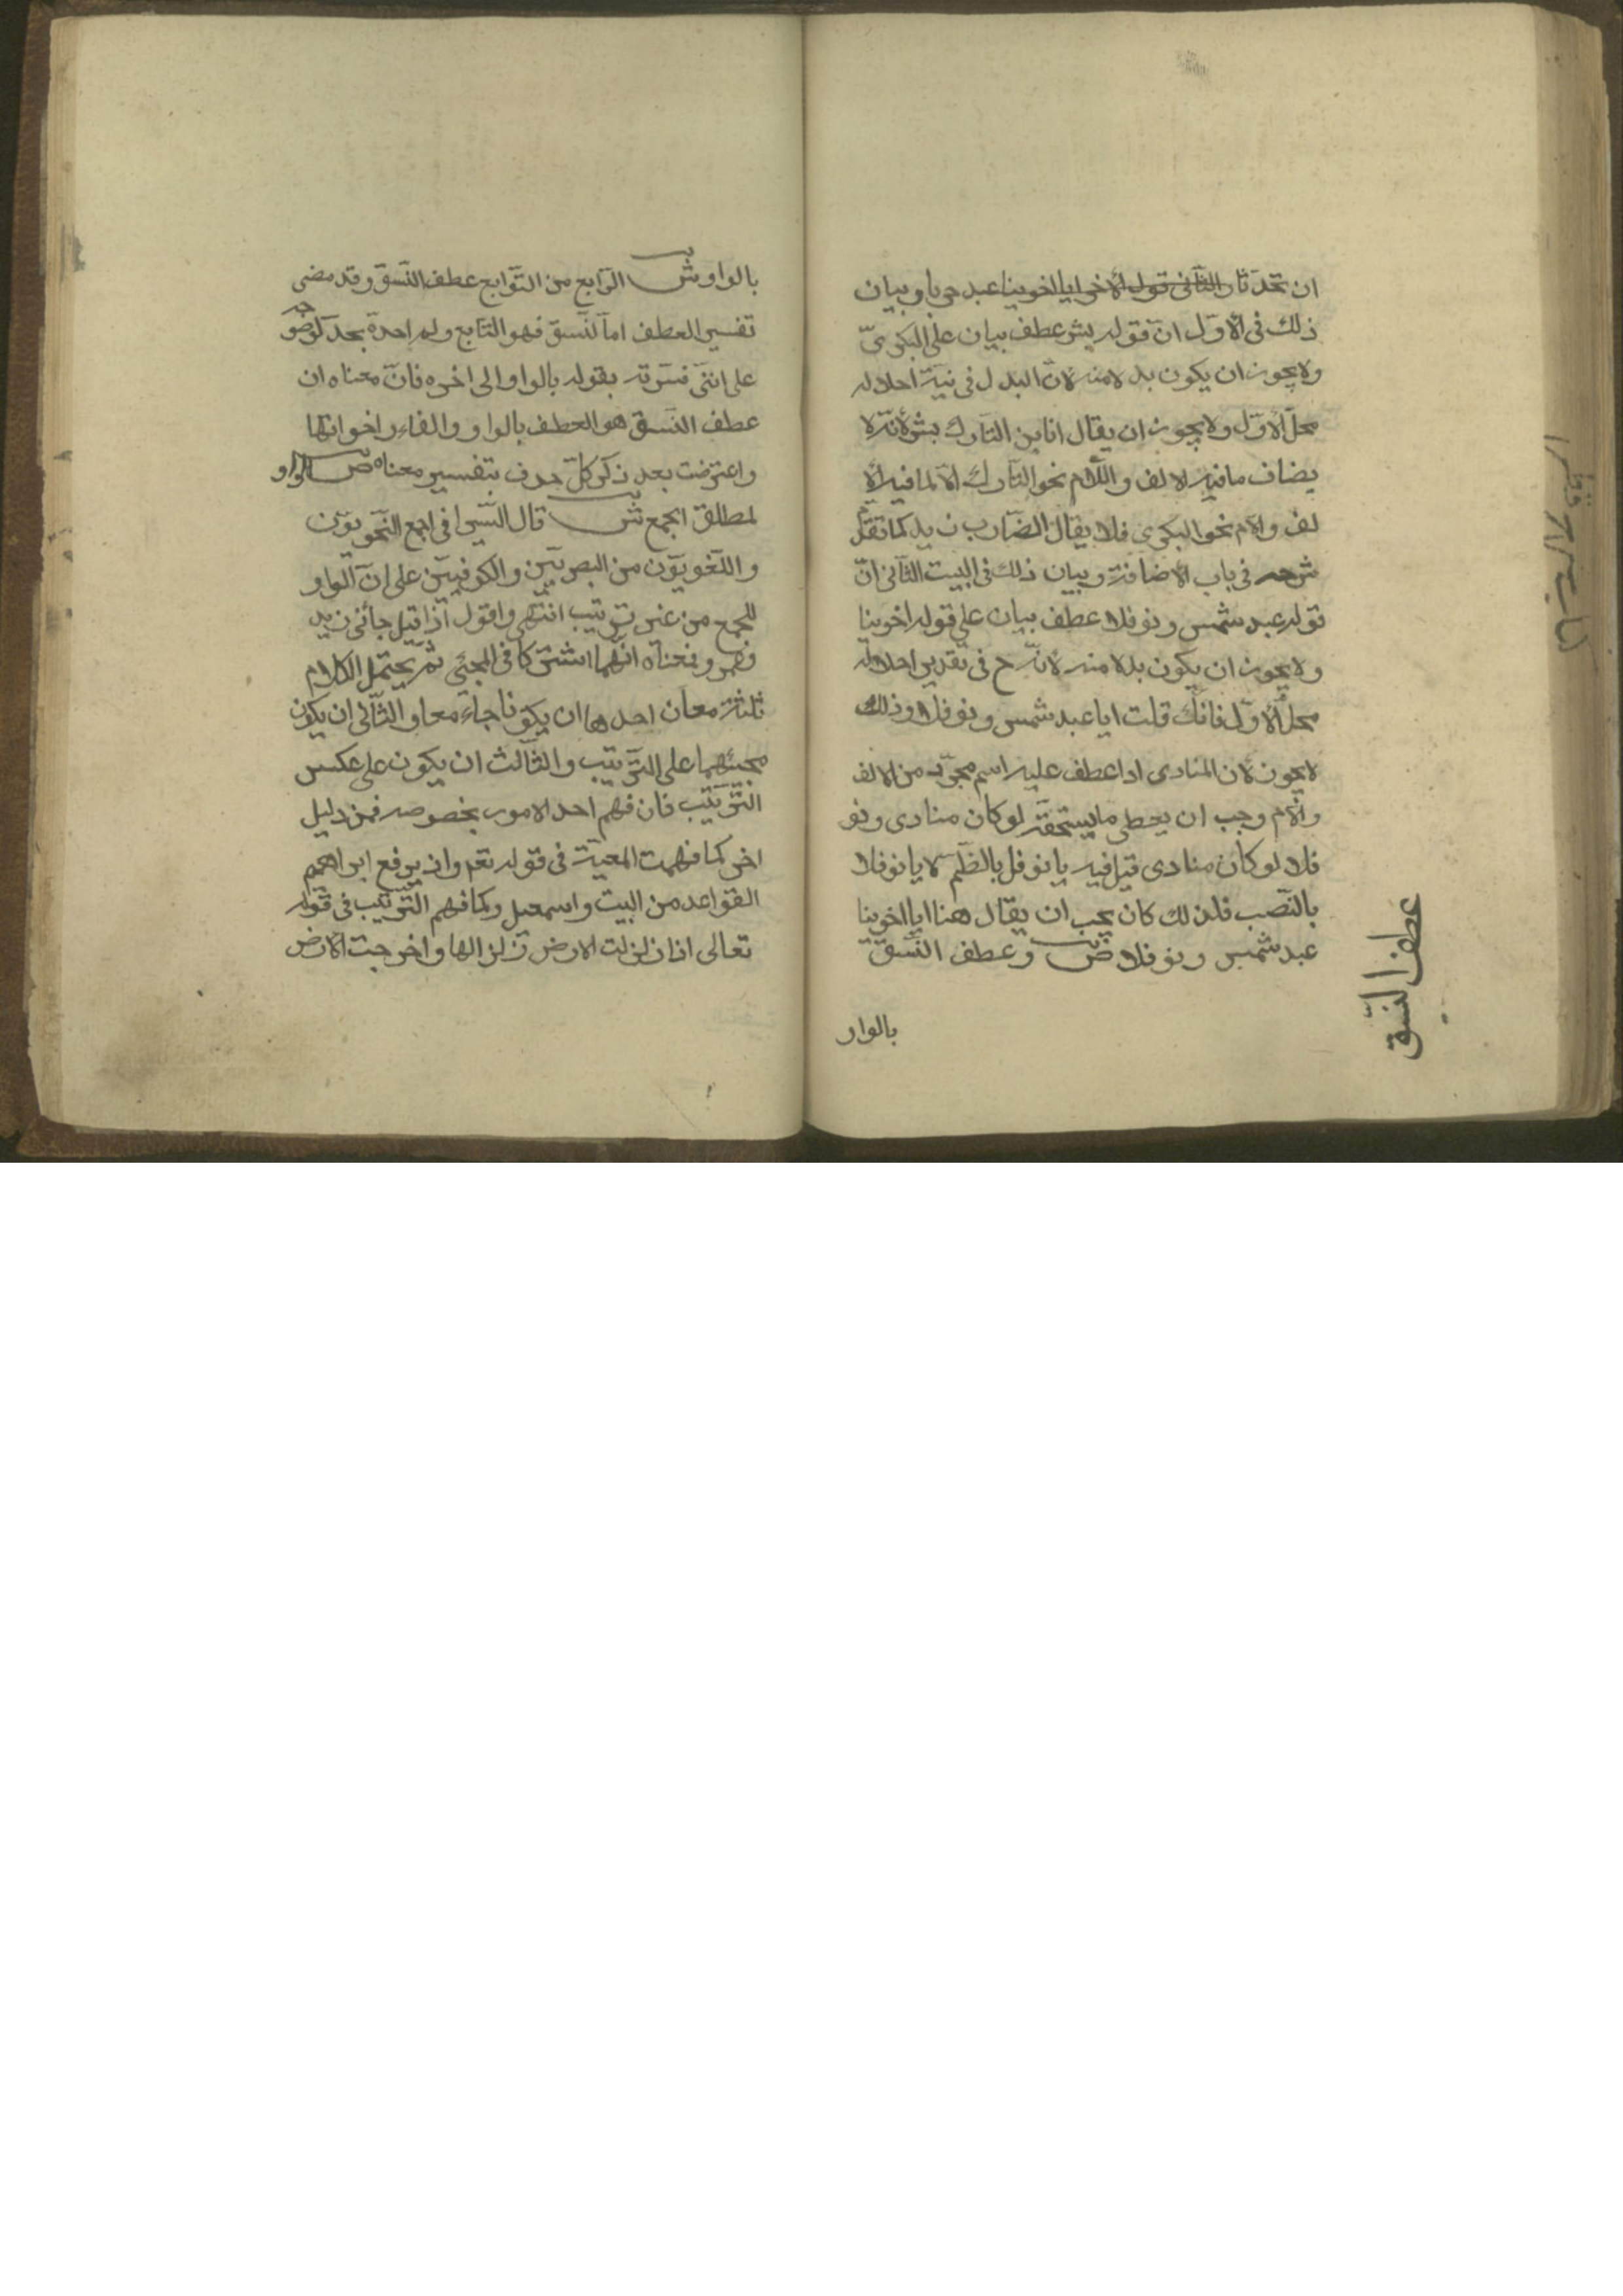 ان تحدثا الثانى قول الآخر ايا اخوينا عبد حربا وبيان
ذلك فى الاوّل انّ قوله بشر عطف بيان على البكرىّ
ولا يجوز ان يكون بدلا منه لانّ البدل فى نيّة احلاله
محلّ الاوّل ولا يجوز ان يقال انا ابن التّارك بشر لانّه لا
يضاف ما فيه الالف واللّام نحو التّارك الّا لما فيه الا
لف والام نحو البكرى فلا يقال الضّارب زيد كما تقدّم
شرحه فى باب الاضافة وبيان ذلك فى البيت الثّانى انّ
قوله عبد شمس ونوفلا عطف بيان على قوله اخوينا
ولا يجوز ان يكون بدلا منه لانّه ح فى تقدير احلاله
محلّ الاوّل فانّك قلت ايا عبد شمس ونوفلا وذلك
لا يجوز لان المنادى اذا عطف عليه اسم مجرّد من الالف
والام وجب ان يعطى ما يستحقّه لو كان منادى ونو
فلا لو كان منادى قيل فيه يا نوفل بالظّم لا يا نوفلا
بالنّصب فلذلك كان يجب ان يقال هنا ايا اخوينا
عبد شمس ونوفلا ص وعطف النّسق
عطف النّسق
بالواو
بالواو ش الرّابع من التّوابع عطف النّسق وقد مضى
تفسير العطف امّا النّسق فهو التّابع ولم احدّه بحدّ لوضوحه
على انّنى فسّرته بقوله بالواو الى اخره فانّ معناه ان
عطف النّسق هو العطف بالواو والفاء واخواتها
واعترضت بعد ذكر كلّ حرف بتفسير معناه ص الواو
لمطلق الجمع ش قال السّيرافى اجمع النّحويّون
واللّغويّون من البصريّين والكوفيّين على انّ الواو
للجمع من غير ترتيب انتهى واقول اذا قيل جائنى زيد
وعمرو فمعناه انّهما اشتركا فى المجئى ثمّ يحتمل الكلام
ثلثة معان احدها ان يكونا جاءَ معا والثّانى ان يكون
مجيئهما على التّرتيب والثّالث ان يكون على عكس
التّرتيب فان فهم احد الامور بخصوصه فمن دليل
اخر كما فهمت المعيّة فى قوله تعم واذ يرفع ابراهيم
القواعد من البيت واسمعيل وكما فهم التّرتيب فى قوله
تعالى اذا زلزلت الارض زلزالها واخرجت الارض